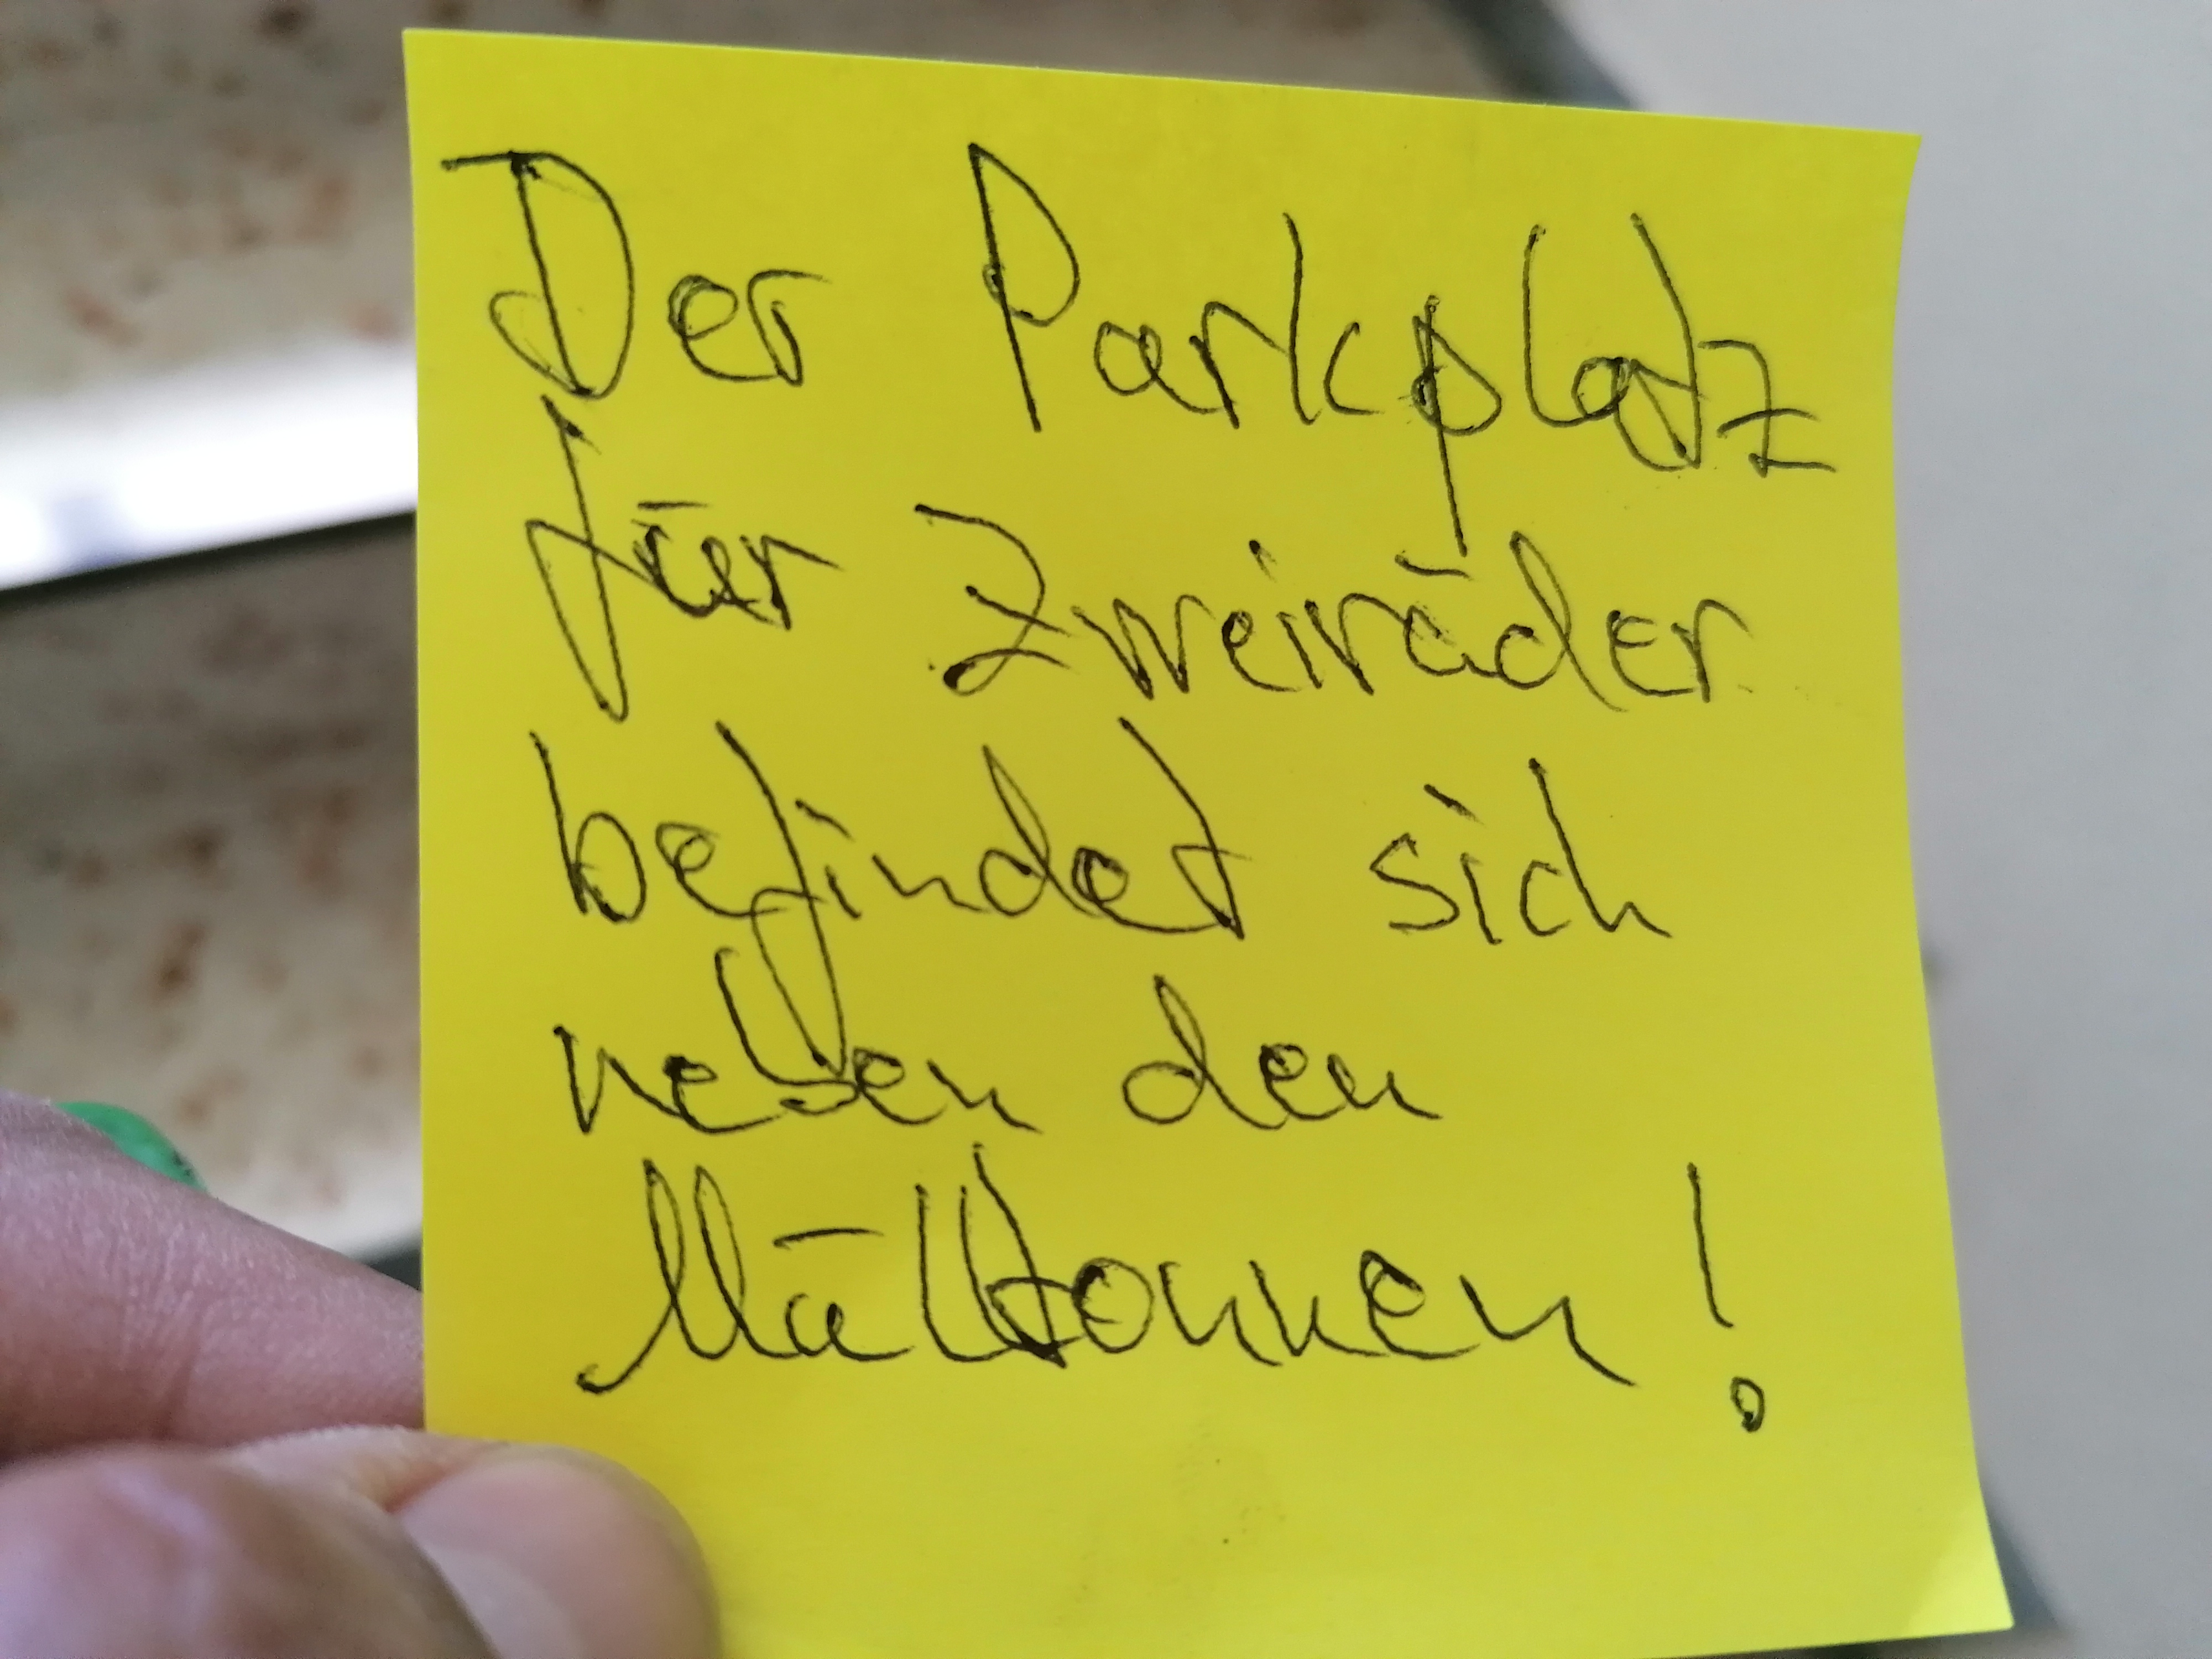 Der Parkplatz
für Zweiräder
befindet sich
neben den
Mülltonnen!